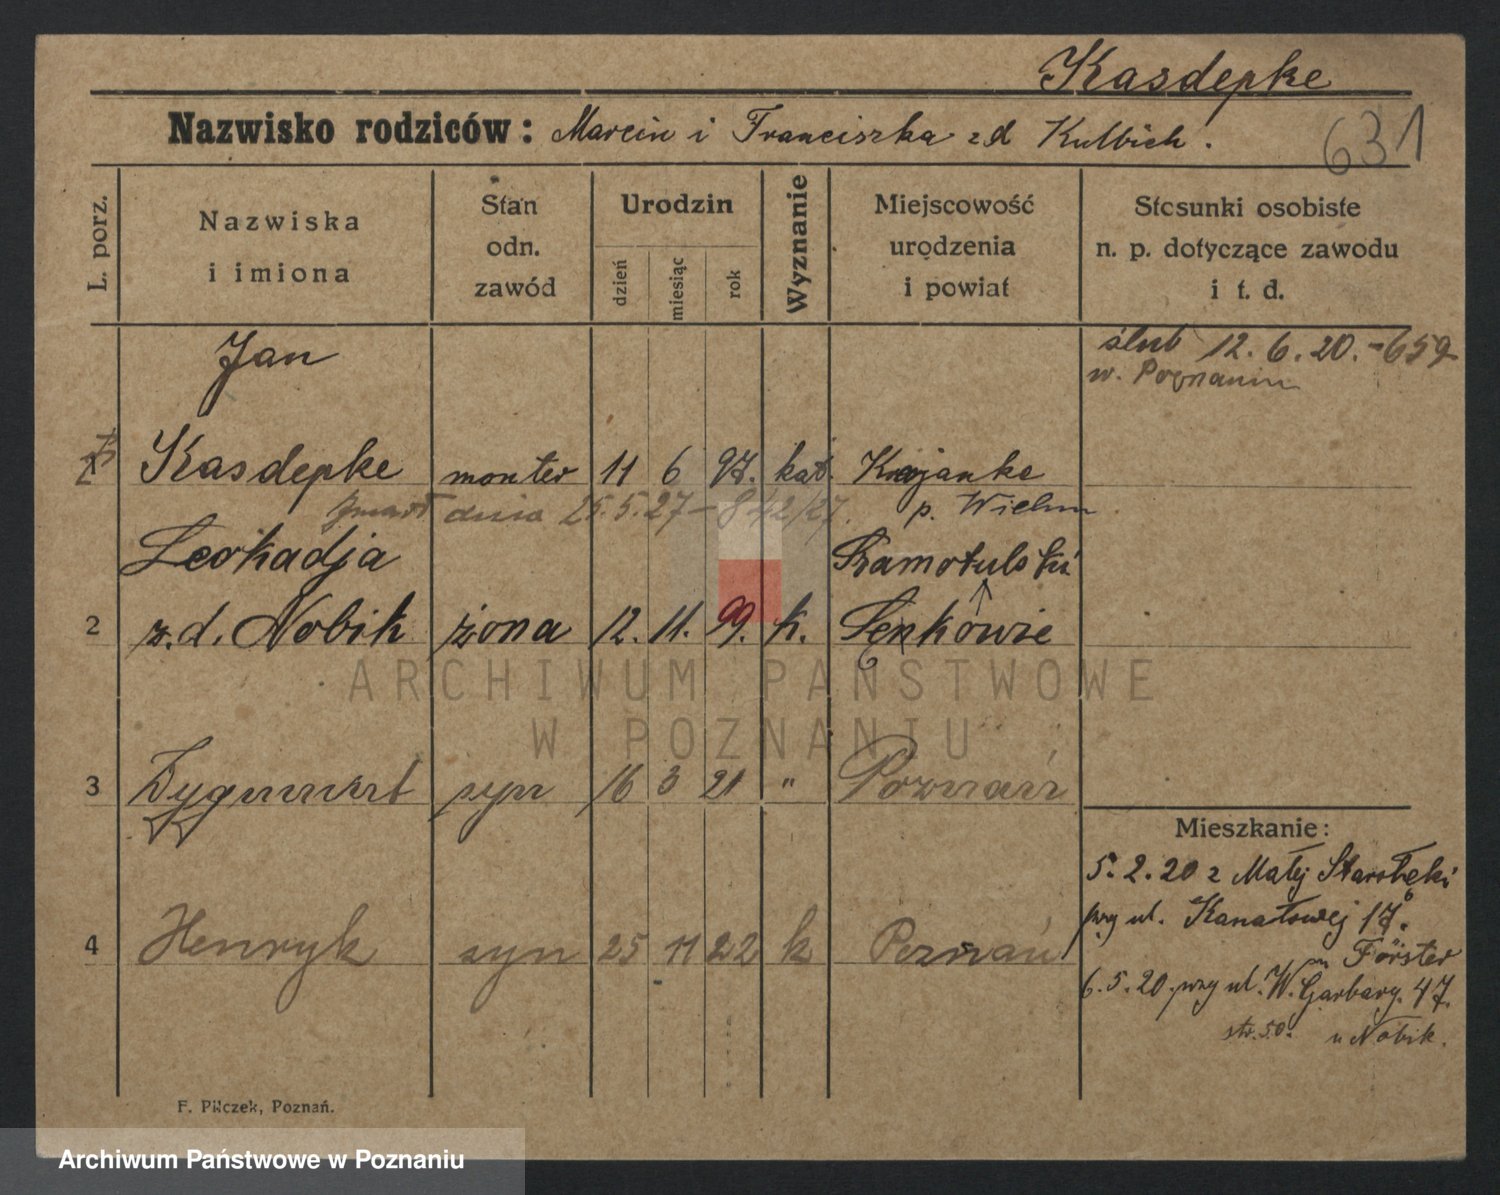 Kasdepke
Nazwisko rodziców: Marcin i Franciszka zd Kulbich.
631
L. porz.
Nazwiska i imiona
Stan odn. zawód
Urodzin
dzień miesiąc rok
Wyznanie
Miejscowość urodzenia i powiat
Stosunki osobiste n. p. dotyczące zawodu i t. d.
Jan
ślub 12. 6. 20. - 659
w. Poznaniu
1 Kasdepke monter 11 6 97. kat. Krojanke
zmarł dnia 25.5.27 - 842/27. p. Wielun
Leokadja Szamotulski
2 z.d. Nobik żona 12. 11. 99. k. Lenkowie
ARCHIWUM PAŃSTWOWE
W POZNANIU
3 Zygmunt syn 16 3 21 " Poznań
Mieszkanie:
5. 2. 20 z Małej Starołęki
przy ul. Kanałowej 17.
Förster
4 Henryk syn 25 11 22 k Poznań
6. 5. 20. przy ul. W. Garbary. 47.
str. 50. u Nobik.
F. Pilczek, Poznań.
Archiwum Państwowe w Poznaniu